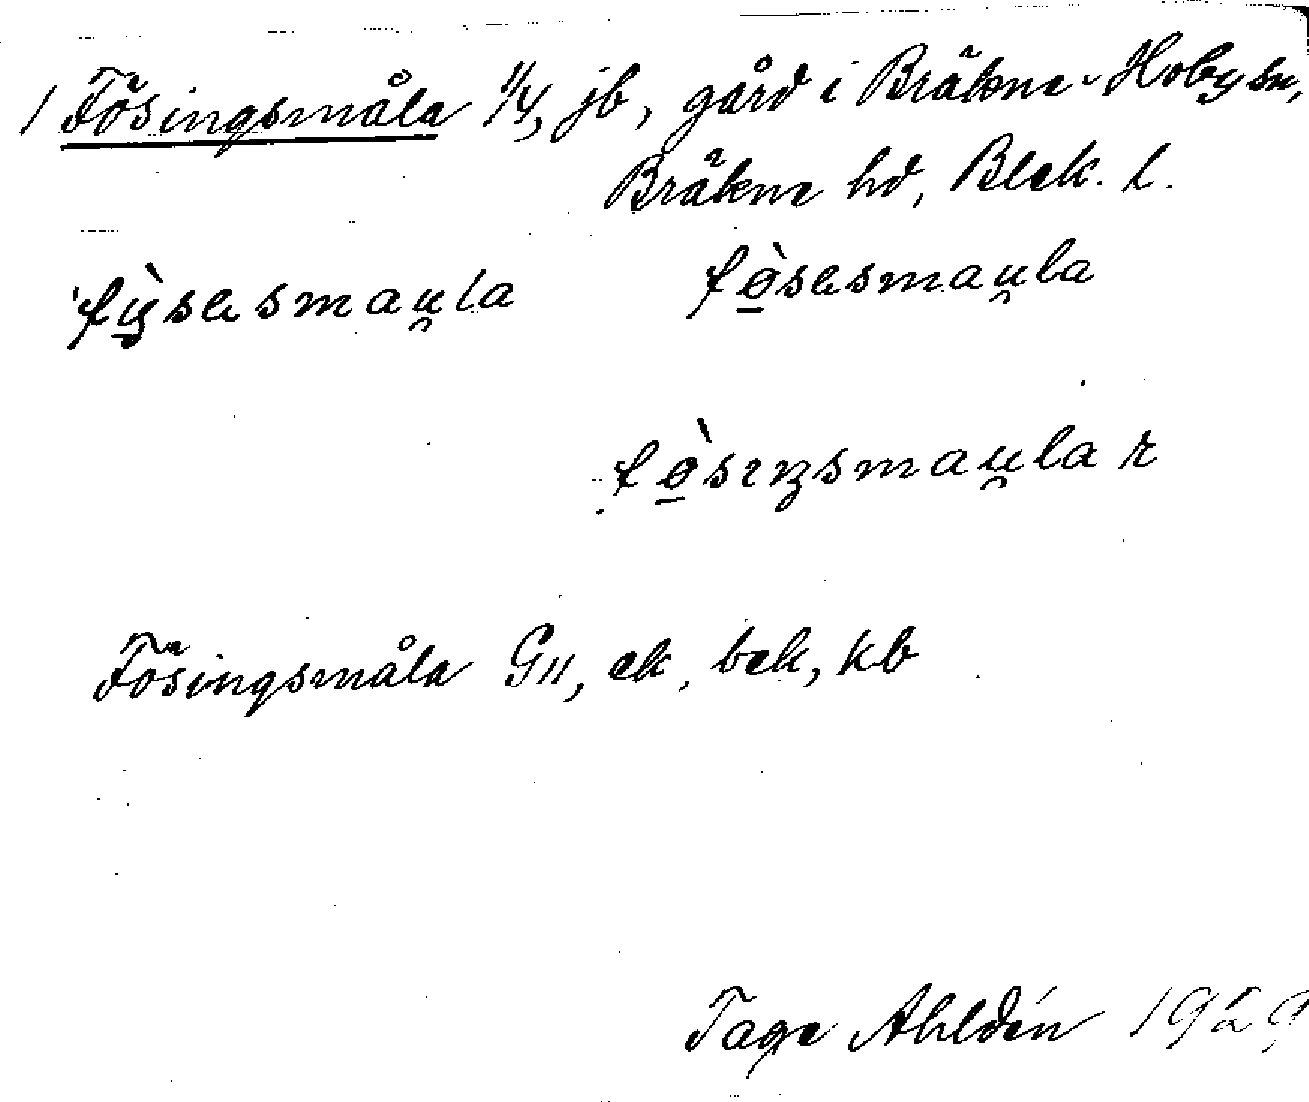 1 Fösingsmåla 1/4, jb, gård i Bräkne-Hoby sn,
Bräkne hd, Blek. l.
fỳ̠sasmau̯la fø̠̀sasmau̯la
fø̠̀sıŋsmau̯la r
Fösingsmåla G11, ek, bek, kb
Tage Ahldén 1929